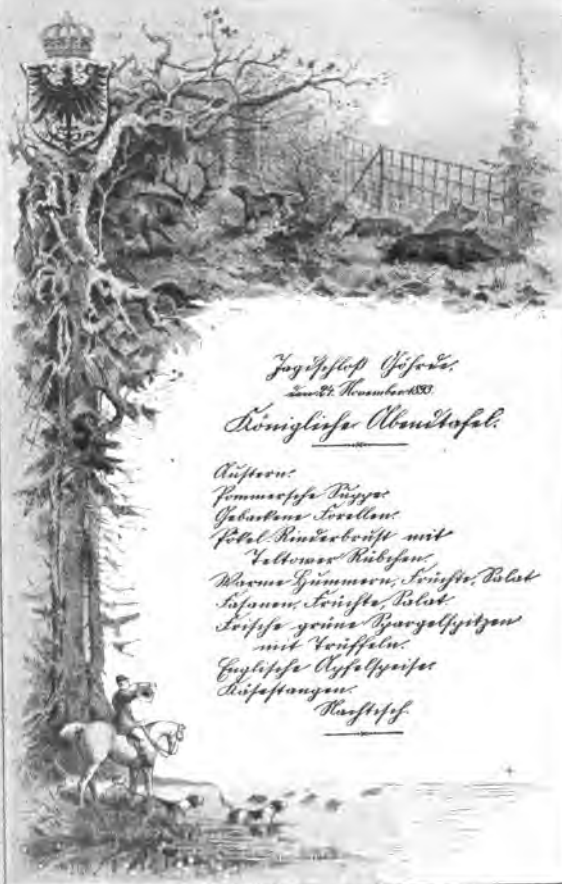 Jagdschloß Göhrde,
den 21. November 1893.
Königliche Abendtafel.
Austern.
Pommersche Suppe.
Gebackene Forellen.
Pökel Rinderbrust mit
Teltower Rübchen.
Warme Hummern, Früchte, Salat
Fasanen, Früchte, Salat.
Frische grüne Spargelspitzen
mit Trüffeln.
Englische Apfelspeise.
Käsestangen.
Nachtisch.